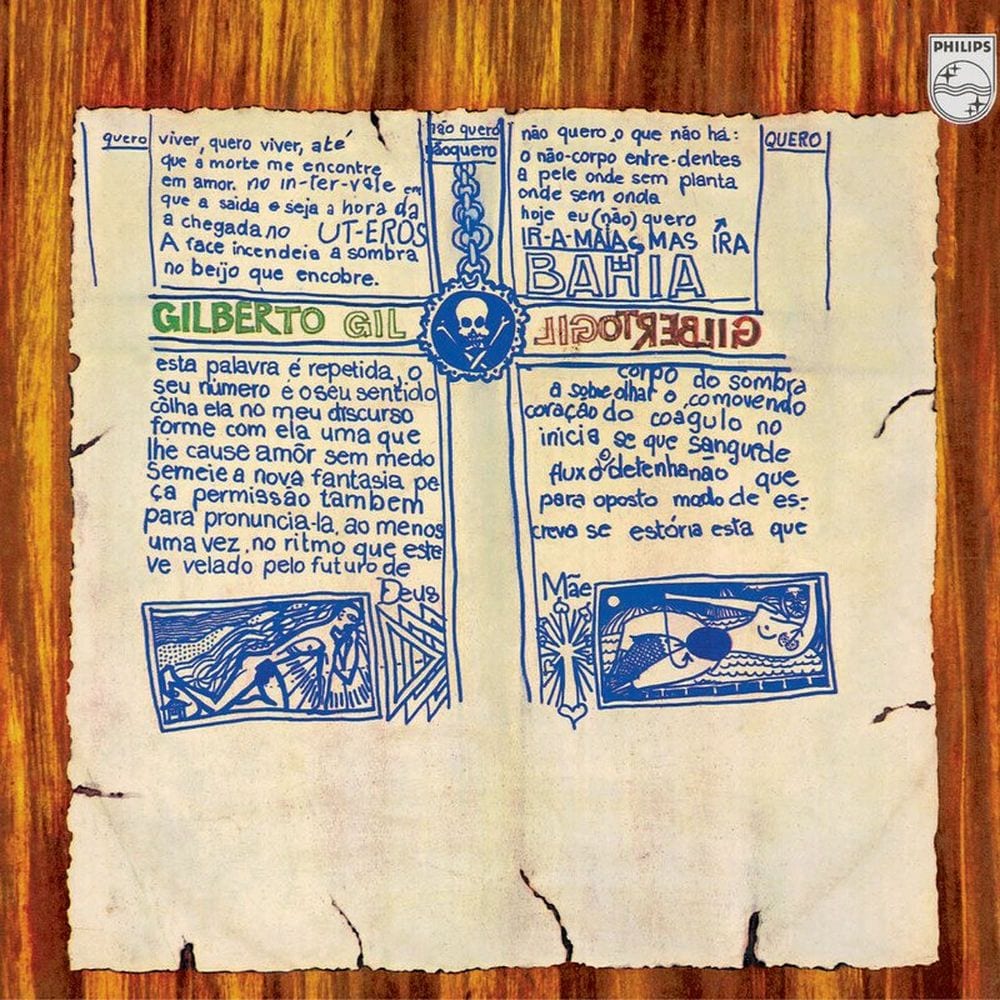 PHILIPS
quero
viver, quero viver, até
que a morte me encontre
em amor. no in-ter-vale em
que a saida e seja a hora da
a chegada no UT-EROS
A face incendeia a sombra
no beijo que encobre.
não quero
nãoquero
não quero o que não há:
o não-corpo entre-dentes
a pele onde sem planta
onde sem onda
hoje eu (não) quero
IR-A-MAIA, MAS IRA
BAHIA
QUERO
GILBERTO GIL
GILBERTO GIL
esta palavra é repetida, o
seu número é o seu sentido
côlha ela no meu discurso
forme com ela uma que
lhe cause amôr sem medo
Semeie a nova fantasia pe-
ça permissão tambem
para pronuncia-la, ao menos
uma vez, no ritmo que este
ve velado pelo futuro de
Deus
corpo do sombra
a sobre olhar o comovendo
coração do coagulo no
inicia se que sangue de
fluxo detenha não que
para oposto modo de es-
creva se estória esta que
Mãe